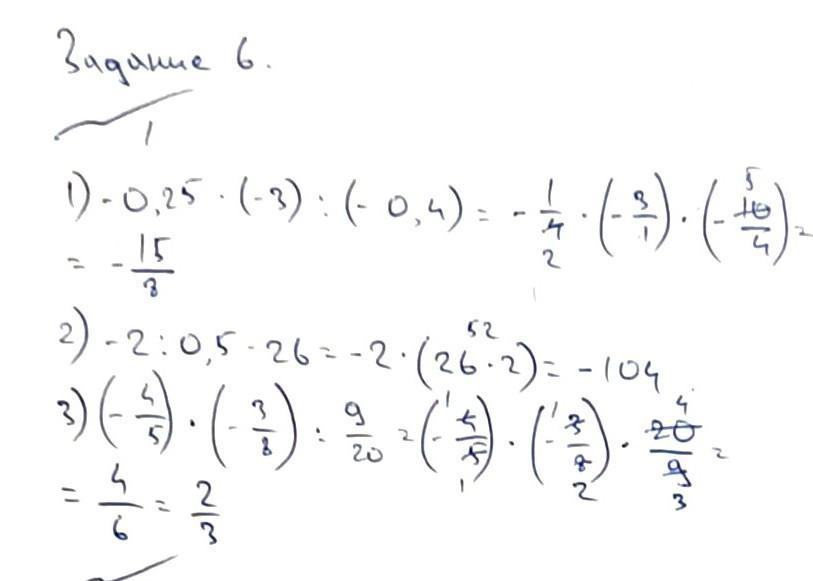 Задание 6.
1
1) - 0,25 · (-3) : (- 0,4) = - 1/4 2 · (- 3/1) · (- 5 10/4) =
= - 15/8
2) - 2 : 0,5 · 26 = - 2 · (26 · 2) 52 = - 104
3) (- 4/5) · (- 3/8) : 9/20 = (- 1 4/5 1) · (- 1 3/8 2) · 4 20/9 3 =
= 4/6 = 2/3